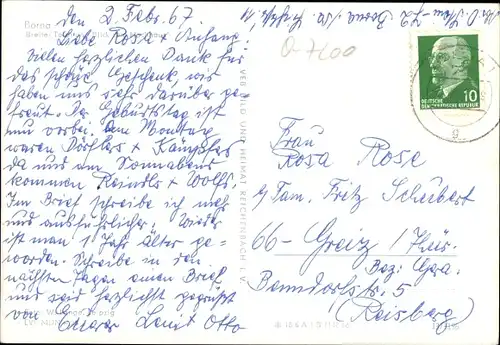 den 2. Febr. 67.
Liebe Rosa u. Anhang!
Vielen herzlichen Dank für
das schöne Geschenk, wir
haben uns sehr darüber ge-
freut. Der Geburtstag ist
nun vorbei. Am Montag
waren Dörflers + Kämpfes
da und am Sonnabend
kommen Reindls + Wolfs.
Im Brief schreibe ich mehr
und ausführlicher. Wieder
ist man 1 Jahr älter ge-
worden. Schreibe in den
nächsten Tagen einen Brief
und seid herzlichst gegrüßt
von Eurer Otto
Borna
VEB BILD UND HEIMAT REICHENBACH I. V.
0-7200
10
DEUTSCHE
DEMOKRATISCHE REPUBLIK
Frau
Rosa Rose
b/ Fam. Fritz Schubert
66- Greiz / Thür.
Bez: Gera.
Str. 5
(Reisberg)